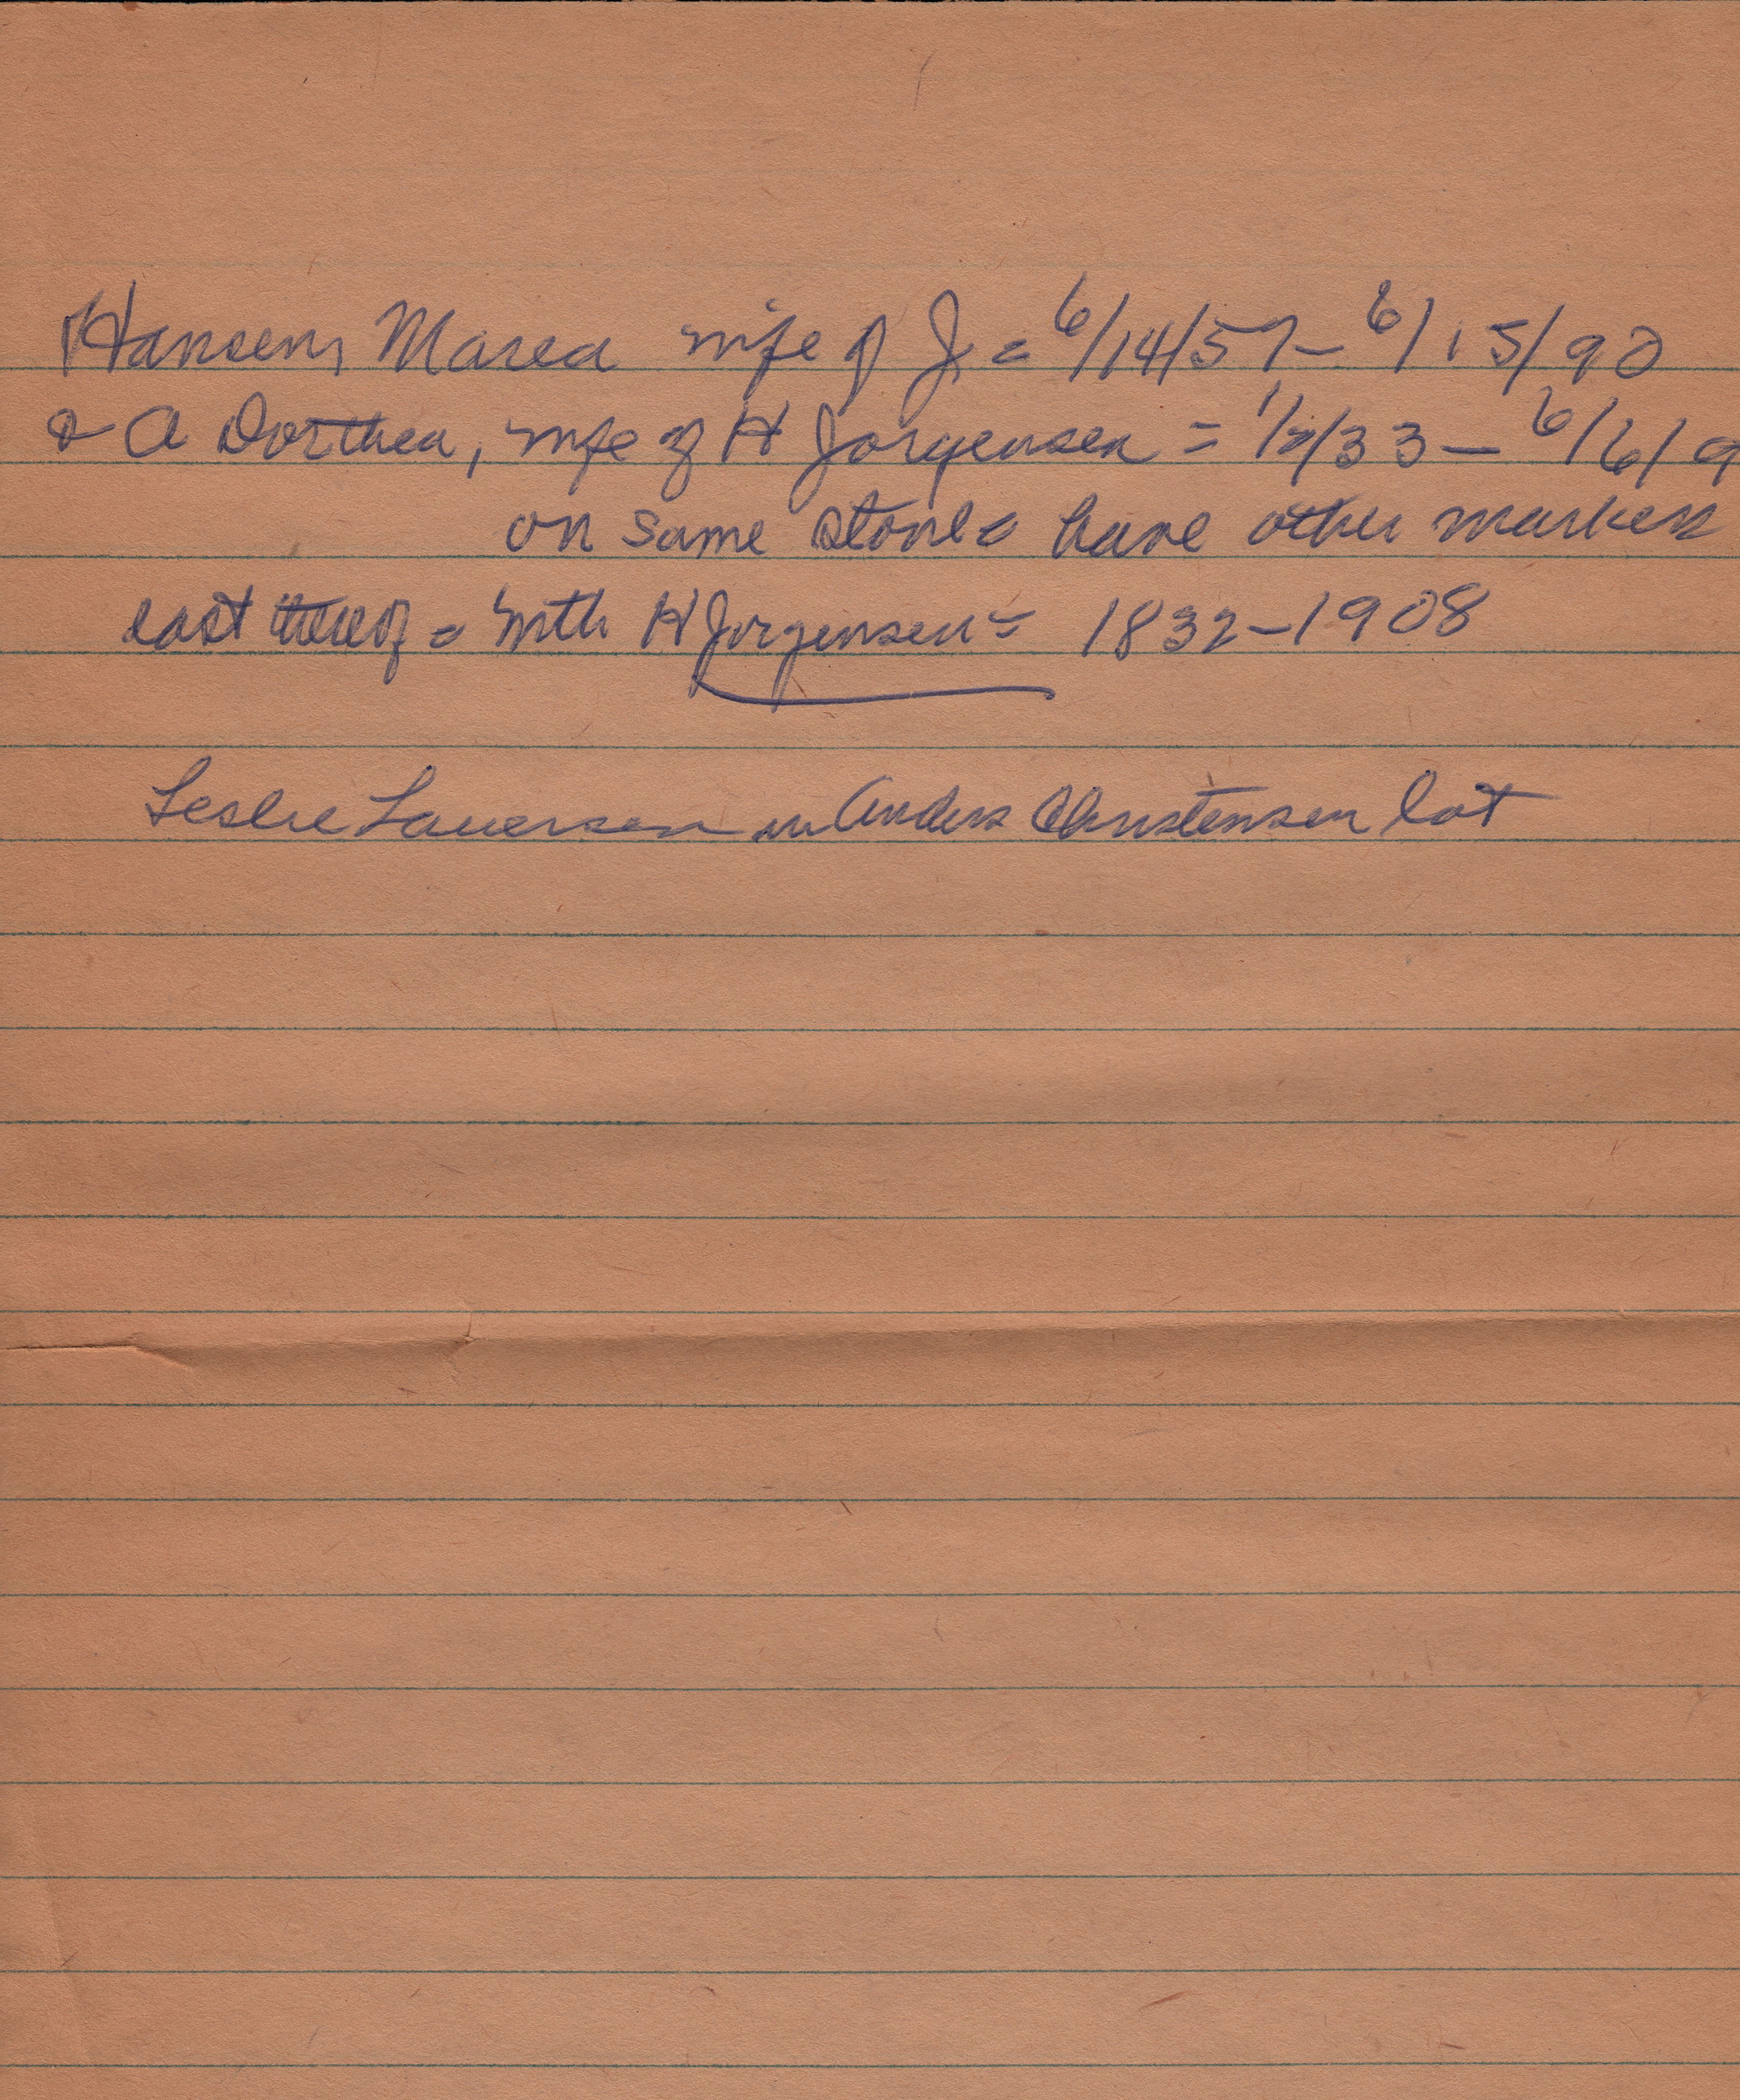 Hansen, Marea wife of J = 6/14/57 - 6/15/90
& A Dorthea, wife of H Jorgensen = 1/2/33 - 6/6/9
on same stone = have other marker
east thereof = with H Jorgensen = 1832-1908
Leslie Lauersen in Anders Christensen lot